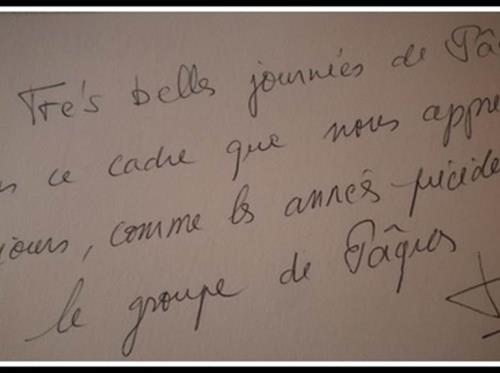 Très belles journées de Pâ
ns ce cadre que nous appré
jours, comme les années précéde
le groupe de Pâques